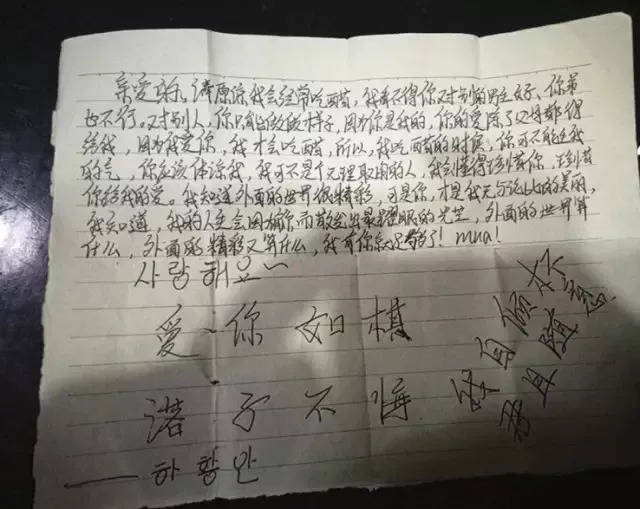 亲爱的，请原谅我会经常吃醋，我看不得你对别的男生好，你弟
也不行，对别人，你只能
因为你是我的，你的爱除了父母都得
给我，因为我爱你，我才会吃醋，所以，我吃醋的时候，你可不能生我
的气，你应该体谅我，我可不是个无理取闹的人，我会懂得珍惜你，珍惜
你给我的爱。我知道外面的世界很精彩，可是你，才是我无与伦比的美丽，
我知道，我的人生会因为你而散发出最耀眼的光芒，外面的世界算
什么，外面的精彩又算什么，我有你就足够了！mua！
사랑해요~
爱你如棋
落子不悔
——하황안